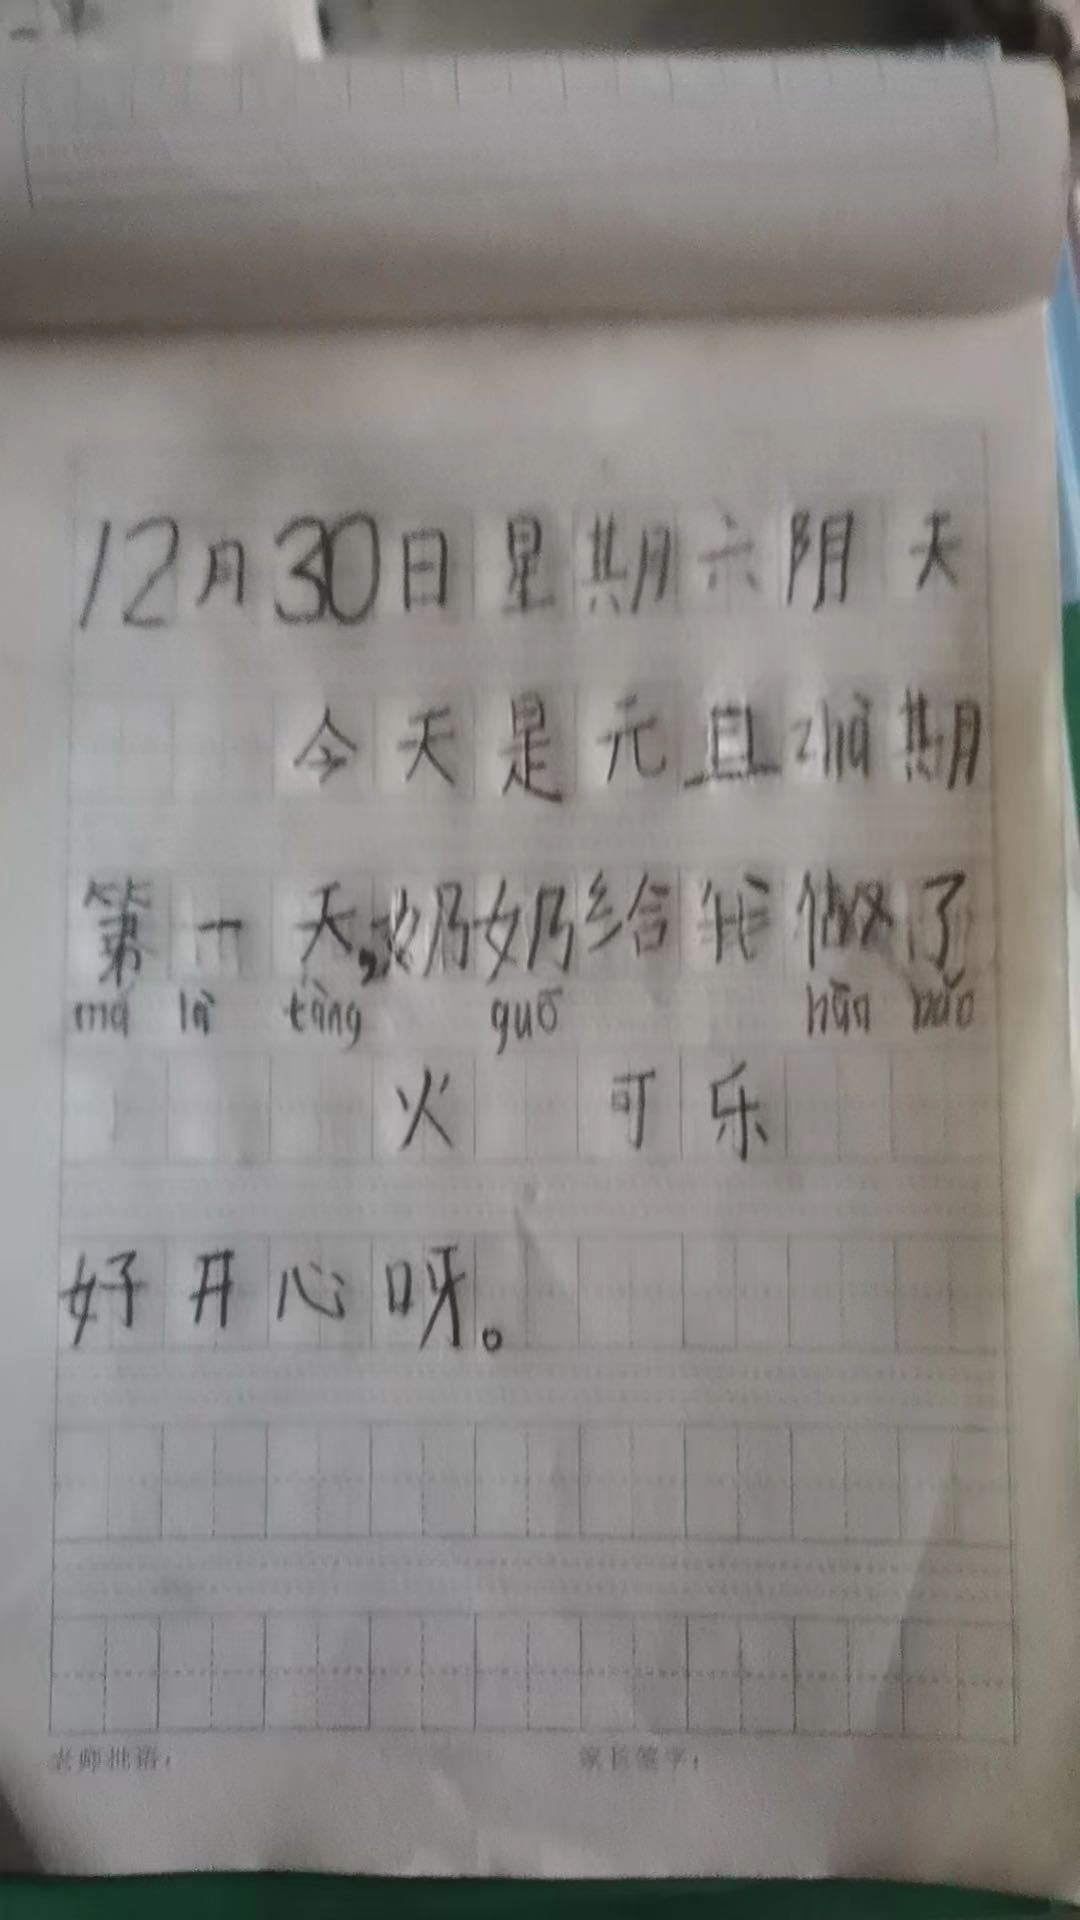 12月30日星期六阴天
今天是元旦假期
第一天,奶奶给我做了
má là tàng guō hàn bǎo
火 可乐
好开心呀。
老师批语:
家长签字: